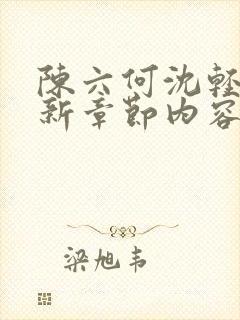 陳六何沈輕
新章節内容
梁旭韦